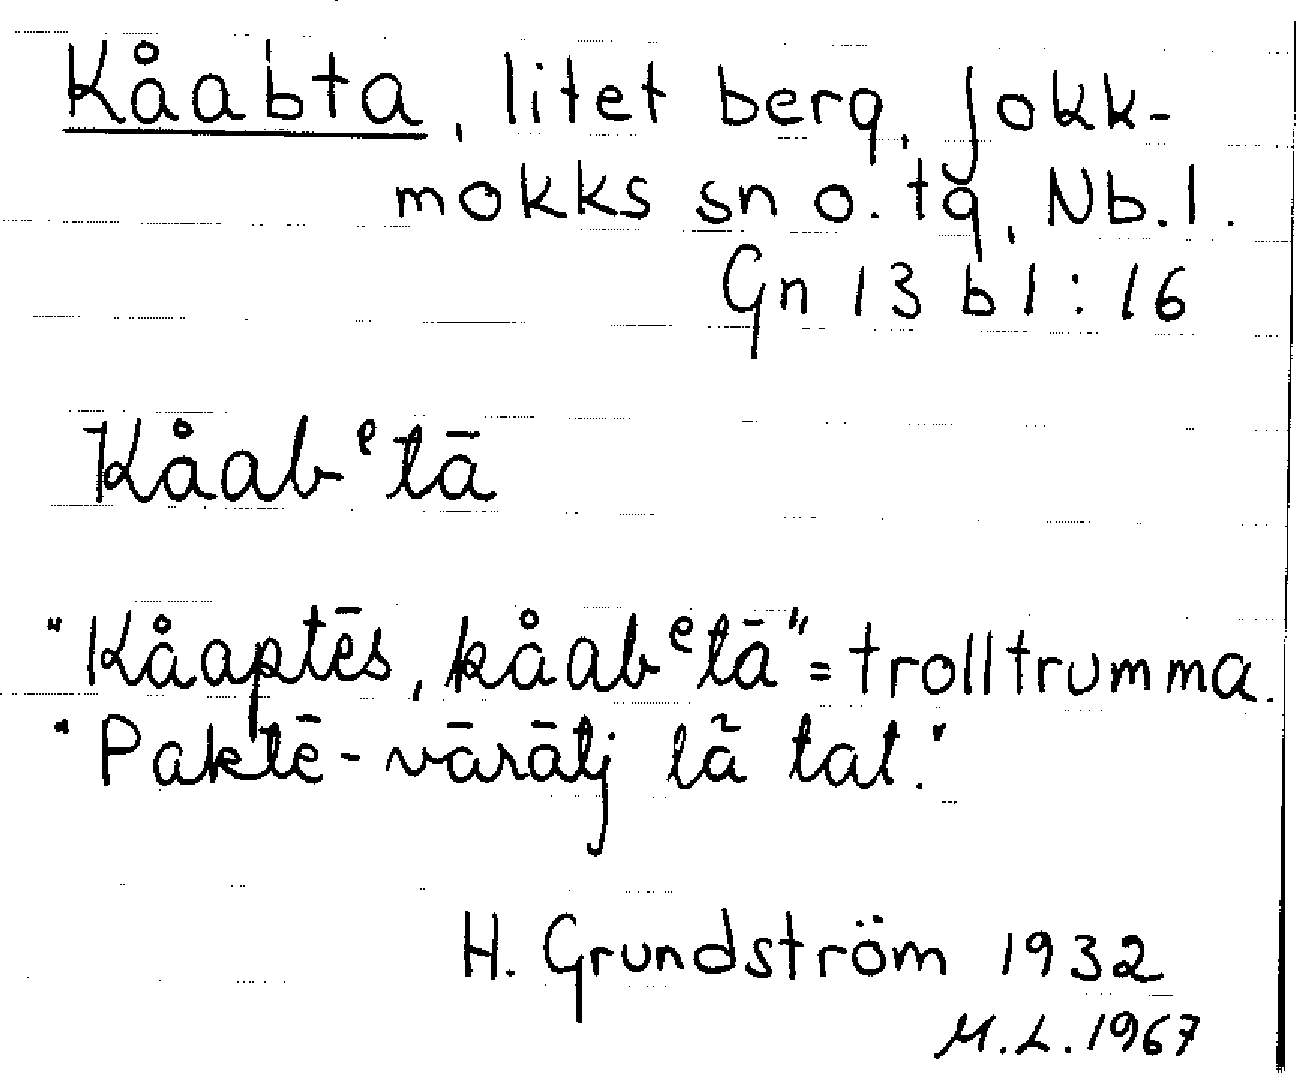 Kåabta, litet berg, Jokk-
mokks sn o. tg, Nb. l.
Gn 13 b 1 : 16
Kåabᵉtā
"Kåaptēs, kåabᵉtā" = trolltrumma.
"Paktē-vārātj lā̃ tat."
H. Grundström 1932
M.L. 1967